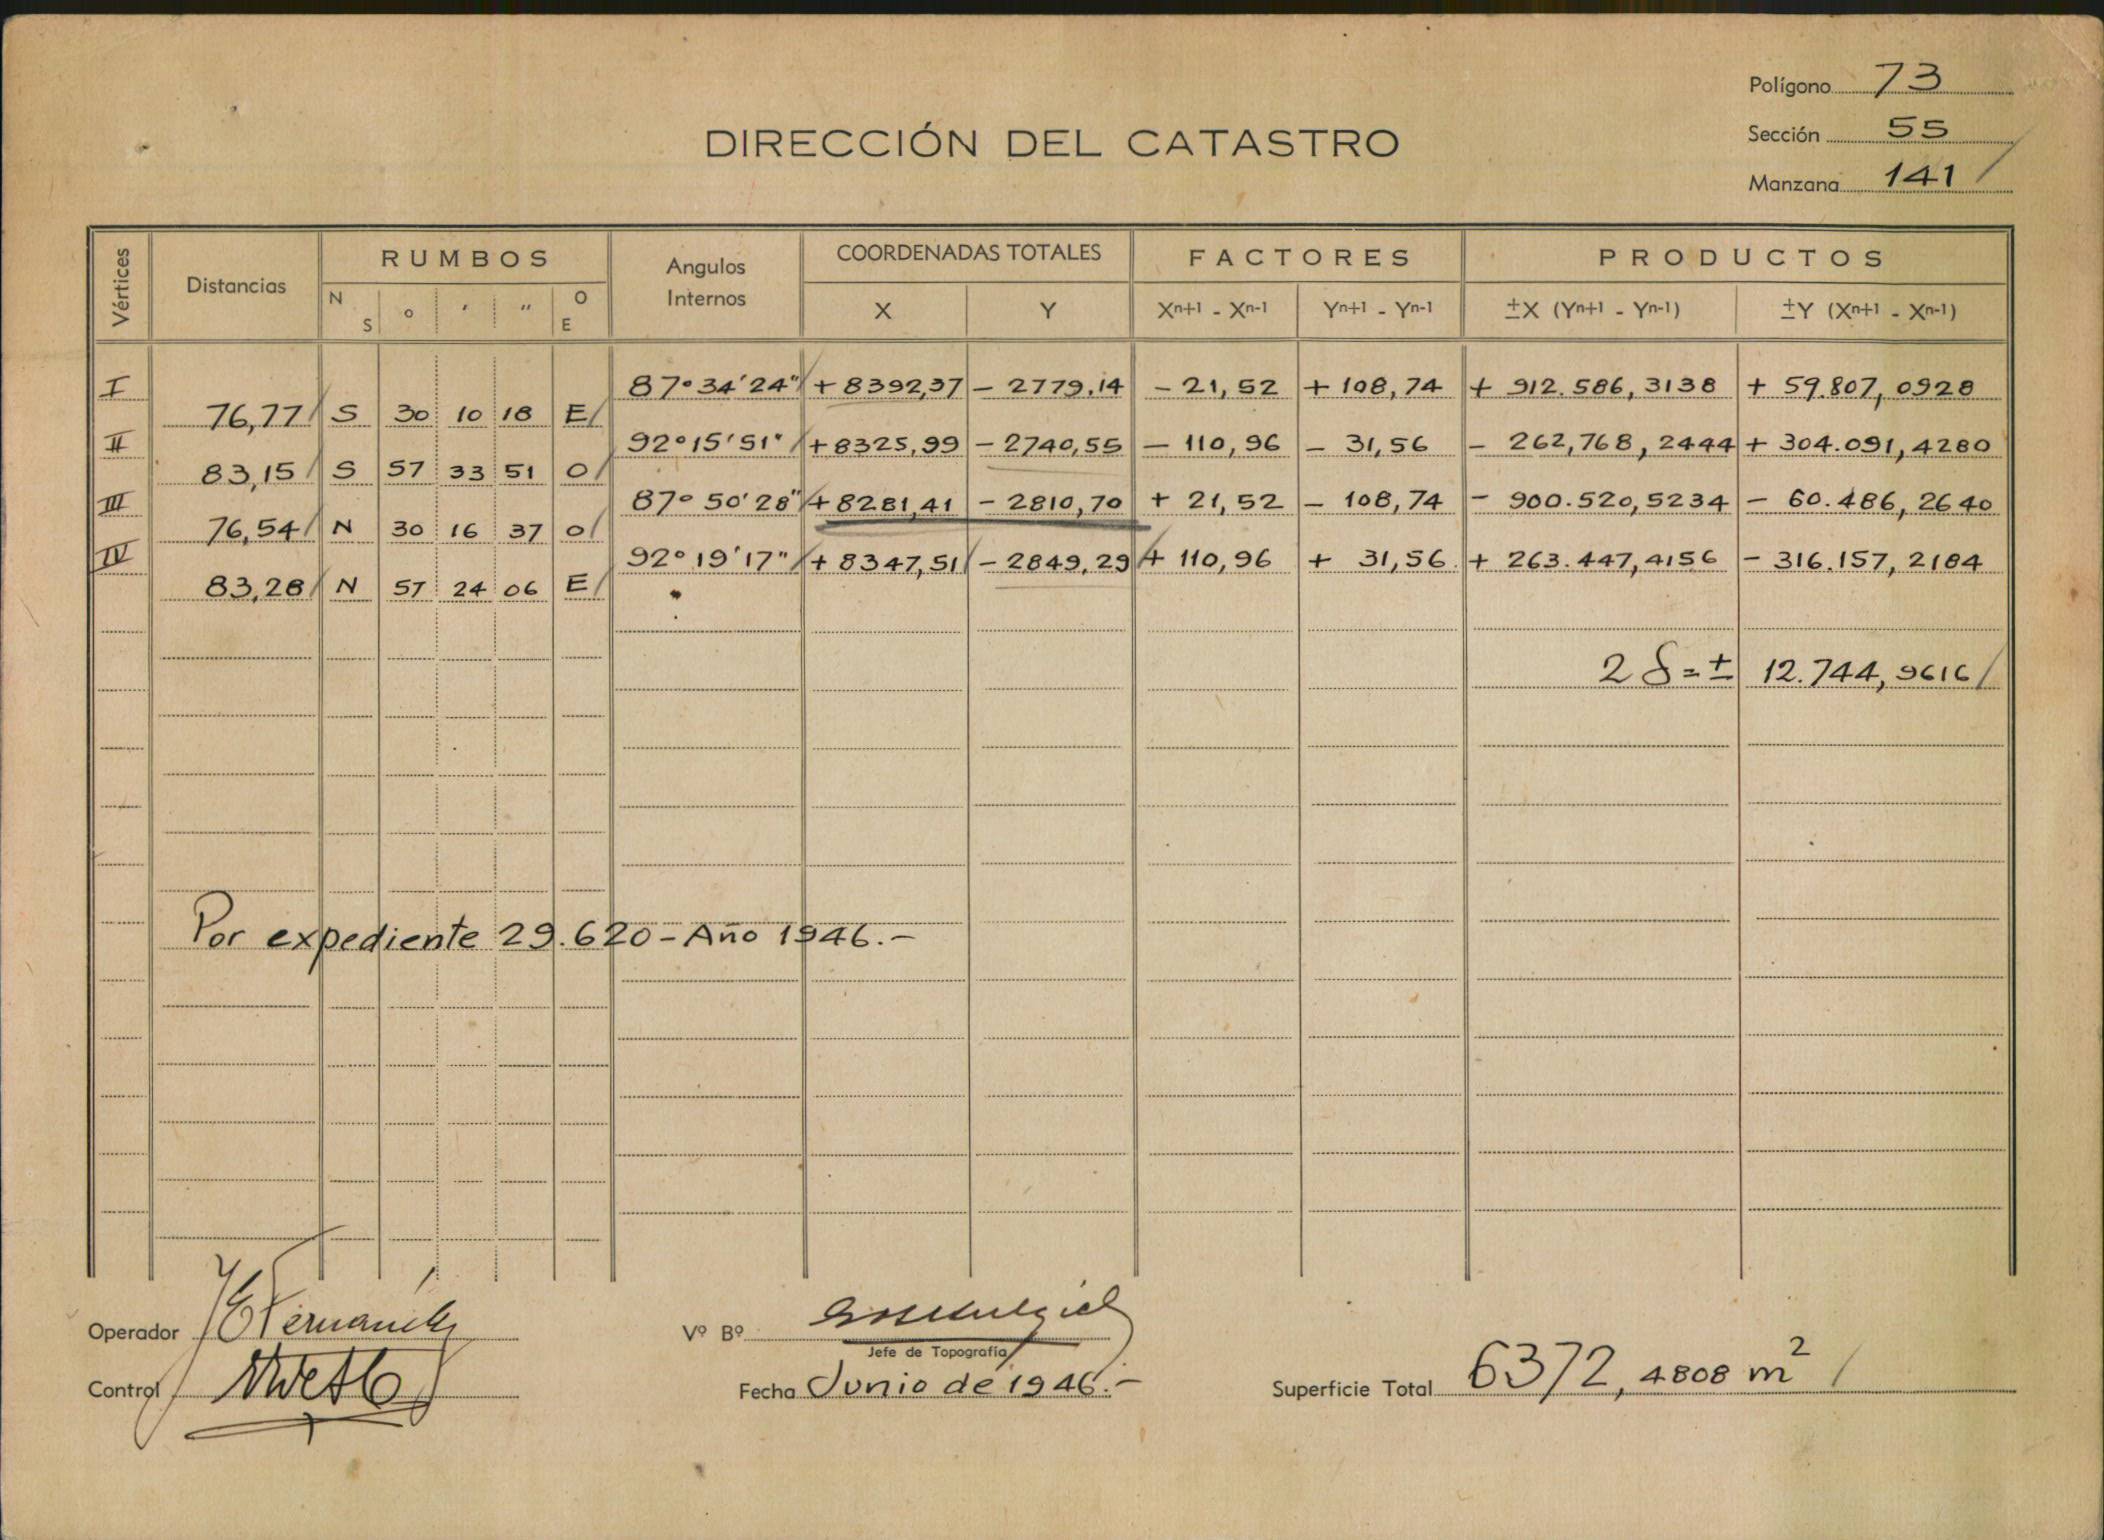 Polígono 73
DIRECCIÓN DEL CATASTRO
Sección 55
Manzana 141
Vértices Distancias RUMBOS N S o ' " O E Angulos Internos COORDENADAS TOTALES X Y FACTORES Xn+1 - Xn-1 Yn+1 - Yn-1 PRODUCTOS ±X (Yn+1 - Yn-1) ±Y (Xn+1 - Xn-1)
I 87° 34' 24" + 8392,37 - 2779,14 - 21,52 + 108,74 + 912.586,3138 + 59.807,0928
76,77 S 30 10 18 E
II 92° 15' 51" + 8325,99 - 2740,55 - 110,96 - 31,56 - 262,768,2444 + 304.091,4280
83,15 S 57 33 51 O
III 87° 50' 28" + 8281,41 - 2810,70 + 21,52 - 108,74 - 900.520,5234 - 60.486,2640
76,54 N 30 16 37 O
IV 92° 19' 17" + 8347,51 - 2849,29 + 110,96 + 31,56 + 263.447,4156 - 316.157,2184
83,28 N 57 24 06 E
2 S = ± 12.744,9616
Por expediente 29.620 - Año 1946.-
Operador
Vº Bº
Jefe de Topografía
Control
Fecha Junio de 1946.-
Superficie Total 6372,4808 m²